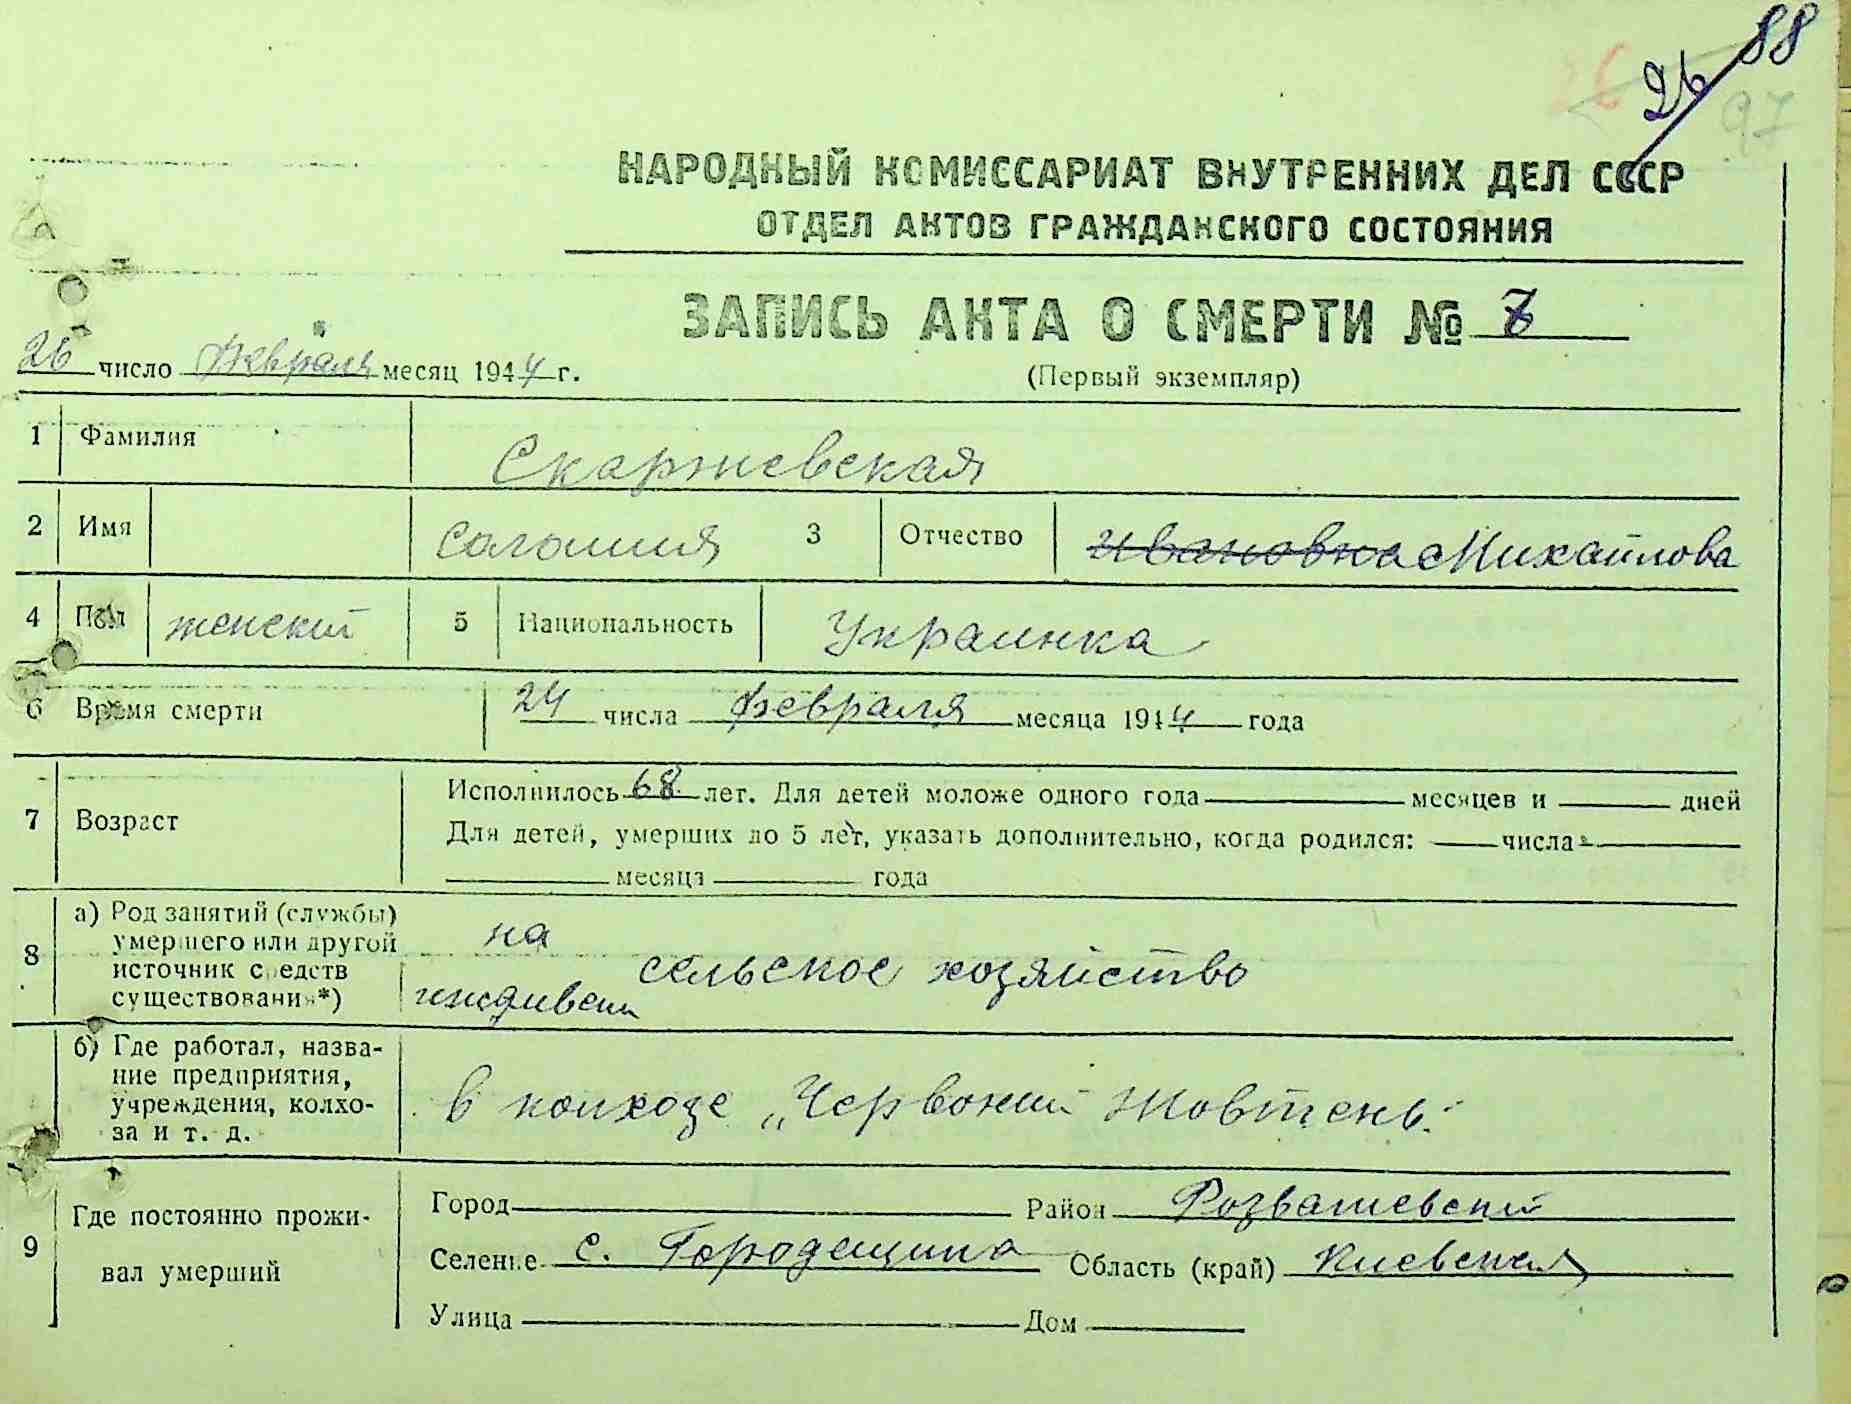 26 / 88
26
97
НАРОДНЫЙ КОМИССАРИАТ ВНУТРЕННИХ ДЕЛ СССР
ОТДЕЛ АКТОВ ГРАЖДАНСКОГО СОСТОЯНИЯ
ЗАПИСЬ АКТА О СМЕРТИ №
26 число февраля месяц 1944 г.
(Первый экземпляр)
1 Фамилия Скаржевская
2 Имя Соломия 3 Отчество Ивановна Михайлова
4 Пол женский 5 Национальность Украинка
6 Время смерти 24 числа февраля месяца 1944 года
7 Возраст Исполнилось 68 лет. Для детей моложе одного года месяцев и дней
Для детей, умерших до 5 лет, указать дополнительно, когда родился: числа
месяца года
8 а) Род занятий (службы) умершего или другой источник средств существования*) на иждивении сельское хозяйство
б) Где работал, назва-
ние предприятия,
учреждения, колхо-
за и т. д.
в колхозе „Червоний Жовтень"
9 Где постоянно прожи-
вал умерший
Город Район Розважевский
Селение с. Городещина Область (край) Киевская
Улица Дом